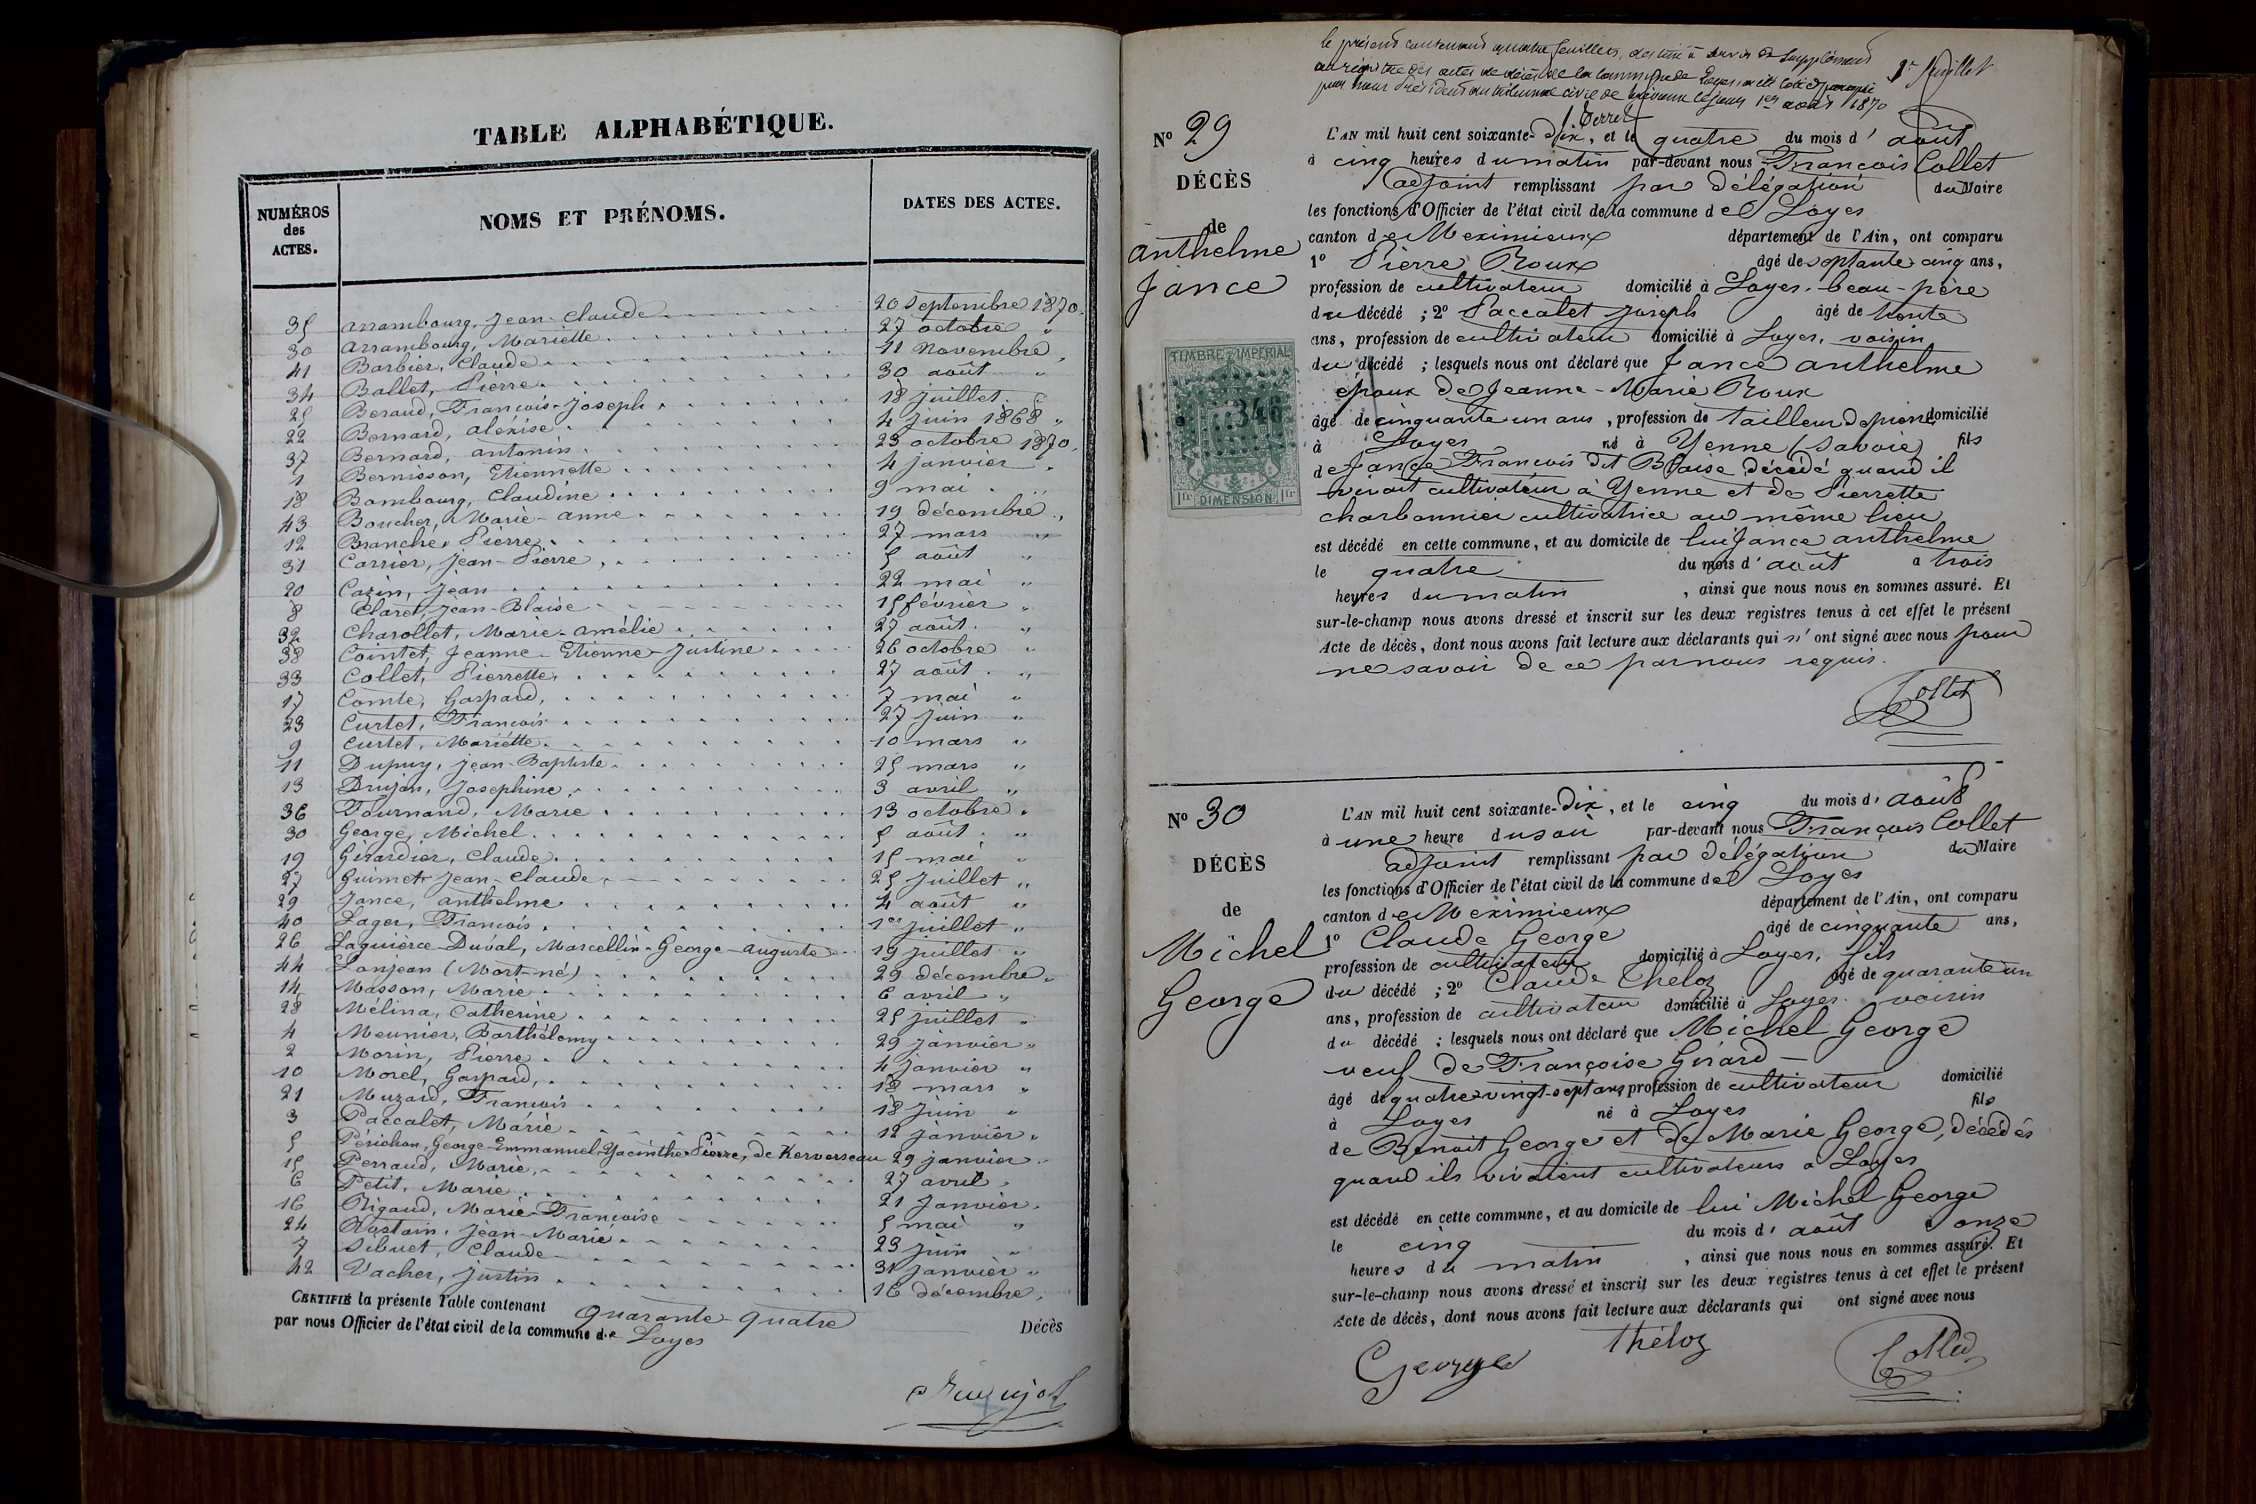 TABLE ALPHABÉTIQUE.
NUMÉROS des ACTES.
NOMS ET PRÉNOMS.
DATES DES ACTES.
35 Arrambourg, Jean-Claude 20 Septembre 1870.
30 Arrambourg, Mariette 27 octobre "
41 Barbier, Claude 11 Novembre "
34 Ballet, Pierre 30 août "
25 Beraud, François-Joseph 18 juillet "
22 Bernard, Alexise 4 juin 1868 "
37 Bernard, Antonin 23 octobre 1870.
1 Bernisson, Etiennette 4 janvier "
18 Bombourg, Claudine 9 mai "
43 Boucher, Marie-Anne 19 décembre "
12 Branche, Pierre 27 mars "
31 Carrier, Jean-Pierre 5 août "
20 Cazin, Jean 22 mai "
8 Claret, Jean-Blaise 15 février "
32 Charollet, Marie-Amélie 27 août "
38 Cointet, Jeanne-Etienne-Justine 26 octobre "
33 Collet, Pierrette 27 août "
17 Comte, Gaspard 7 mai "
23 Curtet, François 27 juin "
9 Curtet, Mariette 10 mars "
11 Dupuy, Jean-Baptiste 25 mars "
13 Drujon, Josephine 3 avril "
36 Fournand, Marie 13 octobre "
30 George, Michel 5 août "
19 Girardier, Claude 15 mai "
27 Guimet Jean-Claude 25 Juillet "
29 Jance, Anthelme 4 août "
40 Lager, François 1er juillet "
26 Laguierce-Duval, Marcellin-George-Auguste 19 juillet "
44 Lonjean (Mort-né) 29 décembre "
14 Masson, Marie 6 avril "
28 Mélina, Catherine 25 juillet "
4 Meunier, Barthélemy 29 janvier "
2 Morin, Pierre 4 janvier "
10 Morel, Gaspard 18 mars "
21 Muzard, François 18 juin "
3 Paccalet, Marie 12 janvier "
5 Périchon, George-Emmanuel-Yacinthe-Pierre, de Kerverseau 29 janvier "
15 Perraud, Marie 27 avril "
6 Petit, Marie 21 Janvier "
16 Rigaud, Marie-Françoise 5 mai "
24 Rostain, Jean-Marie 23 juin "
7 Sibuet, Claude 31 janvier "
42 Vacher, Justin 16 décembre "
CERTIFIÉ la présente Table contenant Quarante-quatre Décès
par nous Officier de l'état civil de la commune de Loyes
le présent contenant quatre feuillets, destiné à servir de supplément 1er feuillet
au registre des actes de décès de la commune de Loyes, a été coté et paraphé
par nous Président du tribunal civil de Trévoux le jour 1er août 1870
No 29
DÉCÈS
de
Anthelme
Jance
TIMBRE IMPÉRIAL
346
1fr DIMENSION 1fr
L'AN mil huit cent soixante-dix, et le quatre du mois d'août
à cinq heures du matin par-devant nous François Collet
adjoint remplissant par délégation du Maire
les fonctions d'Officier de l'état civil de la commune de Loyes
canton de Meximieux département de l'Ain, ont comparu
1o Pierre Roux âgé de soptante cinq ans,
profession de cultivateur domicilié à Loyes, beau-père
du décédé ; 2o Paccalet Joseph âgé de trente
ans, profession de cultivateur domicilié à Loyes, voisin
du décédé ; lesquels nous ont déclaré que Jance anthelme
époux de Jeanne-Marie Roux
âgé de cinquante un ans, profession de tailleur de pierre domicilié
à Loyes né à Yenne (Savoie) fils
de Jance François dit Blaise décédé quand il
vivait cultivateur à Yenne et de Pierrette
charbonnier cultivatrice au même lieu
est décédé en cette commune, et au domicile de lui Jance anthelme
le quatre du mois d'août à trois
heures du matin, ainsi que nous nous en sommes assuré. Et
sur-le-champ nous avons dressé et inscrit sur les deux registres tenus à cet effet le présent
Acte de décès, dont nous avons fait lecture aux déclarants qui n'ont signé avec nous pour
ne savoir de ce par nous requis.
Collet
No 30
DÉCÈS
de
Michel
George
L'AN mil huit cent soixante-dix, et le cinq du mois d'août
à une heure du soir par-devant nous François Collet
adjoint remplissant par délégation du Maire
les fonctions d'Officier de l'état civil de la commune de Loyes
canton de Meximieux département de l'Ain, ont comparu
1o Claude George âgé de cinquante ans,
profession de cultivateur domicilié à Loyes, fils
du décédé ; 2o Claude Theloz âgé de quarante un
ans, profession de cultivateur domicilié à Loyes. voisin
du décédé ; lesquels nous ont déclaré que Michel George
veuf de Françoise Girard
âgé de quatre-vingt-sept ans profession de cultivateur domicilié
à Loyes né à Loyes fils
de Benoit George et de Marie George, décédés
quand ils vivaient cultivateurs à Loyes
est décédé en cette commune, et au domicile de lui Michel George
le cinq du mois d'août à onze
heures du matin, ainsi que nous nous en sommes assuré. Et
sur-le-champ nous avons dressé et inscrit sur les deux registres tenus à cet effet le présent
Acte de décès, dont nous avons fait lecture aux déclarants qui ont signé avec nous
George Théloz Collet